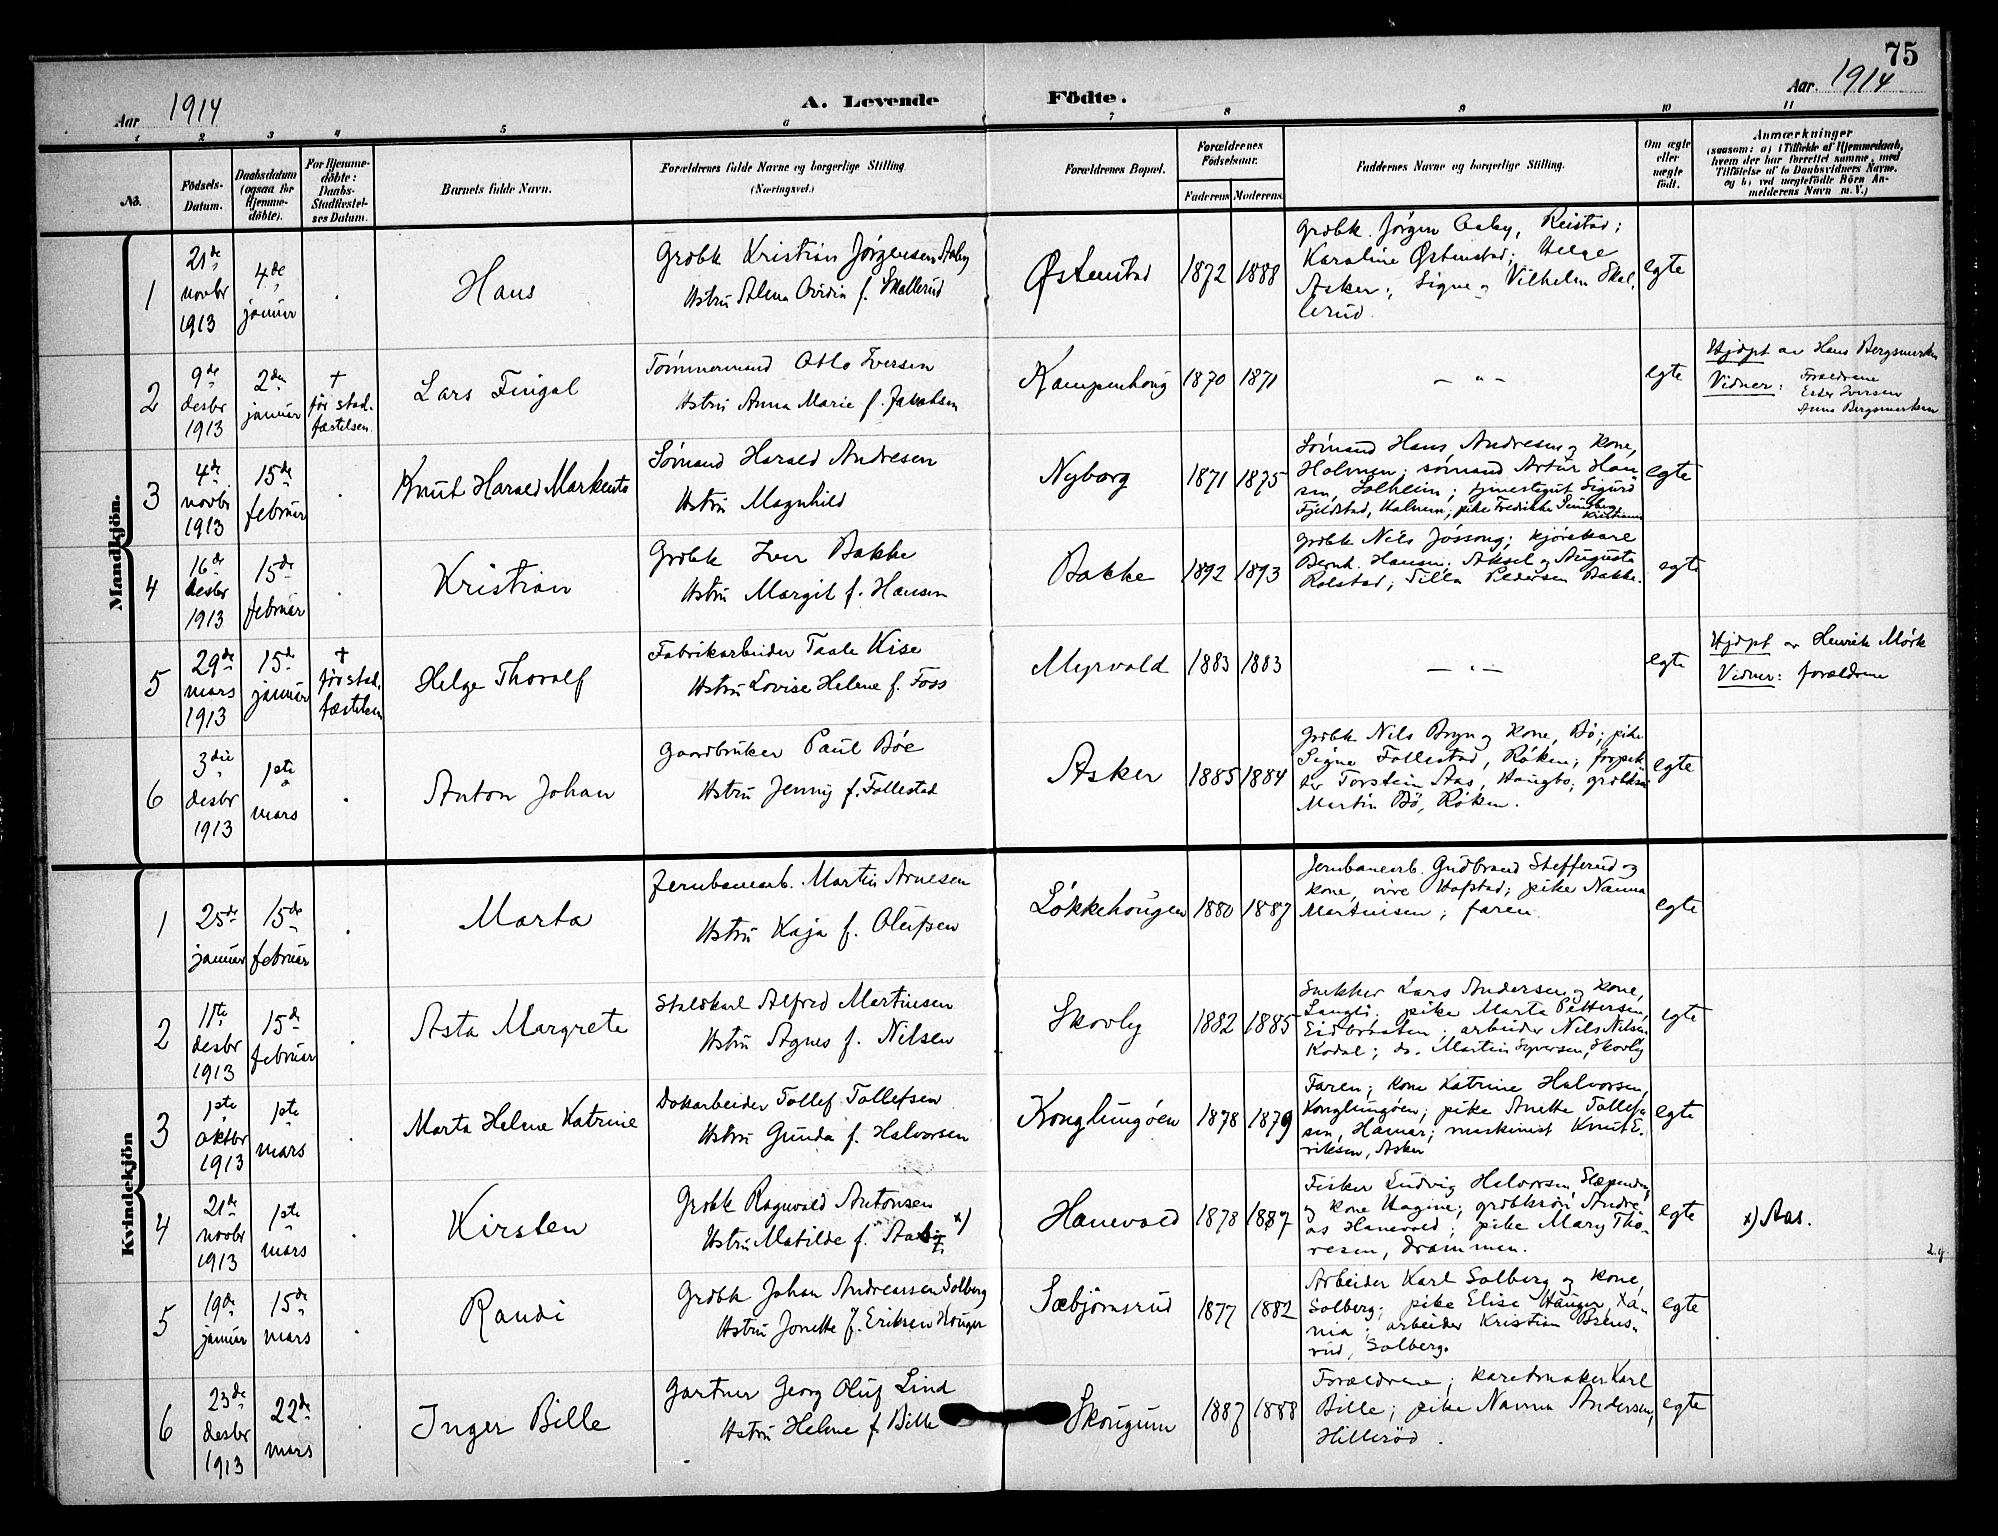 75
Aar 1914
A. Levende Födte.
Aar 1914
1 2 3 4 5 6 7 8 9 10 11
No.
Födsels-
Datum.
Daabsdatum
(ogsaa for
Hjemme-
döbte).
For Hjemme-
döbte:
Daabs-
Stadfæstel-
ses Datum.
Barnets fulde Navn.
Forældrenes fulde Navne og borgerlige Stilling
(Næringsvei.)
Forældrenes Bopæl.
Forældrenes
Födselsaar.
Faderens Moderens
Faddernes Navne og borgerlige Stilling.
Om ægte
eller
uægte
födt.
Anmærkninger
(saasom: a) i Tilfælde af Hjemmedaab,
hvem der har forrettet samme, med
Tilföielse af to Daabsvidners Navne,
og b) ved uægtefödte Börn An-
melderens Navn m. V.)
Mandkjön.
1
21de
novbr
1913
4de
januar
Hans
Grdbk Kristian Jørgensen Aaby
Hstru Alma Ovidia f. Skallerud
Østenstad
1872 1888
Grdbk. Jørgen Aaby, Reistad;
Karoline Østenstad; Helge
Asker; Signe og Vilhelm Skal-
lerud.
egte
2
9de
desbr
1913
2den
januar
†
før stad-
fæstelsen.
Lars Fingal
Tømmermand Otto Iversen
Hstru Anna Marie f. Jacobsen
Kampenhaug
1870 1871
— " —
egte
Hjdpt av Hans Bergsmarken
Vidner: Forældrene
Ester Iversen
Anna Bergsmarken
3
4de
novbr
1913
15de
februar
Knut Harald Markento
Sømand Harald Andresen
Hstru Magnhild
Nyborg
1871 1875
Sømand Hans Andresen og kone,
Holmen; sømand Artur Han
sen, Solheim; Sigurd
Fjeldstad, Halnem; pike Fredrikke
Kristiania
egte
4
16de
desbr
1913
15de
februar
Kristian
Grdbk Iver Bakke
Hstru Margit f. Hansen
Bakke
1892 1893
Grdbk Nils Jøssong; kjørekarl
Bernh. Hansen; Aksel og Augusta
Rolstad; Tilla Pedersen Bakke.
egte
5
29de
mars
1913
15de
januar
†
før stad-
fæstelsen
Helge Thoralf
Fabrikarbeider Taale Kise
Hstru Lovise Helene f. Foss
Myrvold
1883 1883
— " —
egte
Hjdpt av Henrik Mørk
Vidner: forældrene
6
3die
desbr
1913
1ste
mars
Anton Johan
Gaardbruker Paul Bøe
Hstru Jenny f. Follestad
Asker
1885 1884
Grdbk Nils Bryn og kone, Bø; pike
Signe Follestad, Røken; forpak-
ter Torstein Aas, Haugbo; grdbksøn
Martin Bø, Røken.
egte
Kvindekjön
1
25de
januar
15de
februar
Marta
Jernbanearb. Martin Arnesen
Hstru Kaja f. Olufsen
Løkkehaugen
1880 1887
Jernbanearb. Gudbrand Stefferud og
kone, øvre Hofstad; pike Nanna
Martinsen; faren.
egte
2
11te
desbr
1913
15de
februar
Asta Margrete
Staldkarl Alfred Martinsen
Hstru Agnes f. Nilsen
Skovly
1882 1885
Snekker Lars Andersen og kone,
Langli; pike Marta Pettersen,
Eidbraaten; arbeider Nils Nilsen
Kodal; do. Martin Syversen, Skovly
egte
3
1ste
oktbr
1913
1ste
mars
Marta Helene Katrine
Dokarbeider Tollef Tollefsen
Hstru Gunda f. Halvorsen
Konglungøen
1878 1879
Faren; kone Katrine Halvorsen,
Konglungøen; pike Anette Tollef-
sen, Hamar; maskinist Knut E-
riksen, Asker
egte
4
21de
novbr
1913
1ste
mars
Kirsten
Grdbk Ragnvald Antonsen
Hstru Matilde f. x)
Hanevold
1878 1887
Fisker Ludvig Halvorsen, Slependen,
og kone Hagine; grdbksøn Andre-
as Hanevold; pike Mary Tho-
resen, Drammen.
egte
x) Aas.
5
19de
januar
15de
mars
Randi
Grdbk Johan Andreassen Solberg
Hstru Jonette f. Eriksen Hauger
Sæbjørnsrud
1877 1882
Arbeider Karl Solberg og kone,
Solberg; pike Elise Hauger, Xa-
nia; arbeider Kristian Brens-
rud, Solberg.
egte
6
23de
desbr
1913
22de
mars
Inger Bille
Gartner Georg Oluf Lind
Hstru Helene f. Bille
Skougum
1887 1888
Forældrene; karetmaker Karl
Bille; pike Nanna Andersen,
Hillerød.
egte